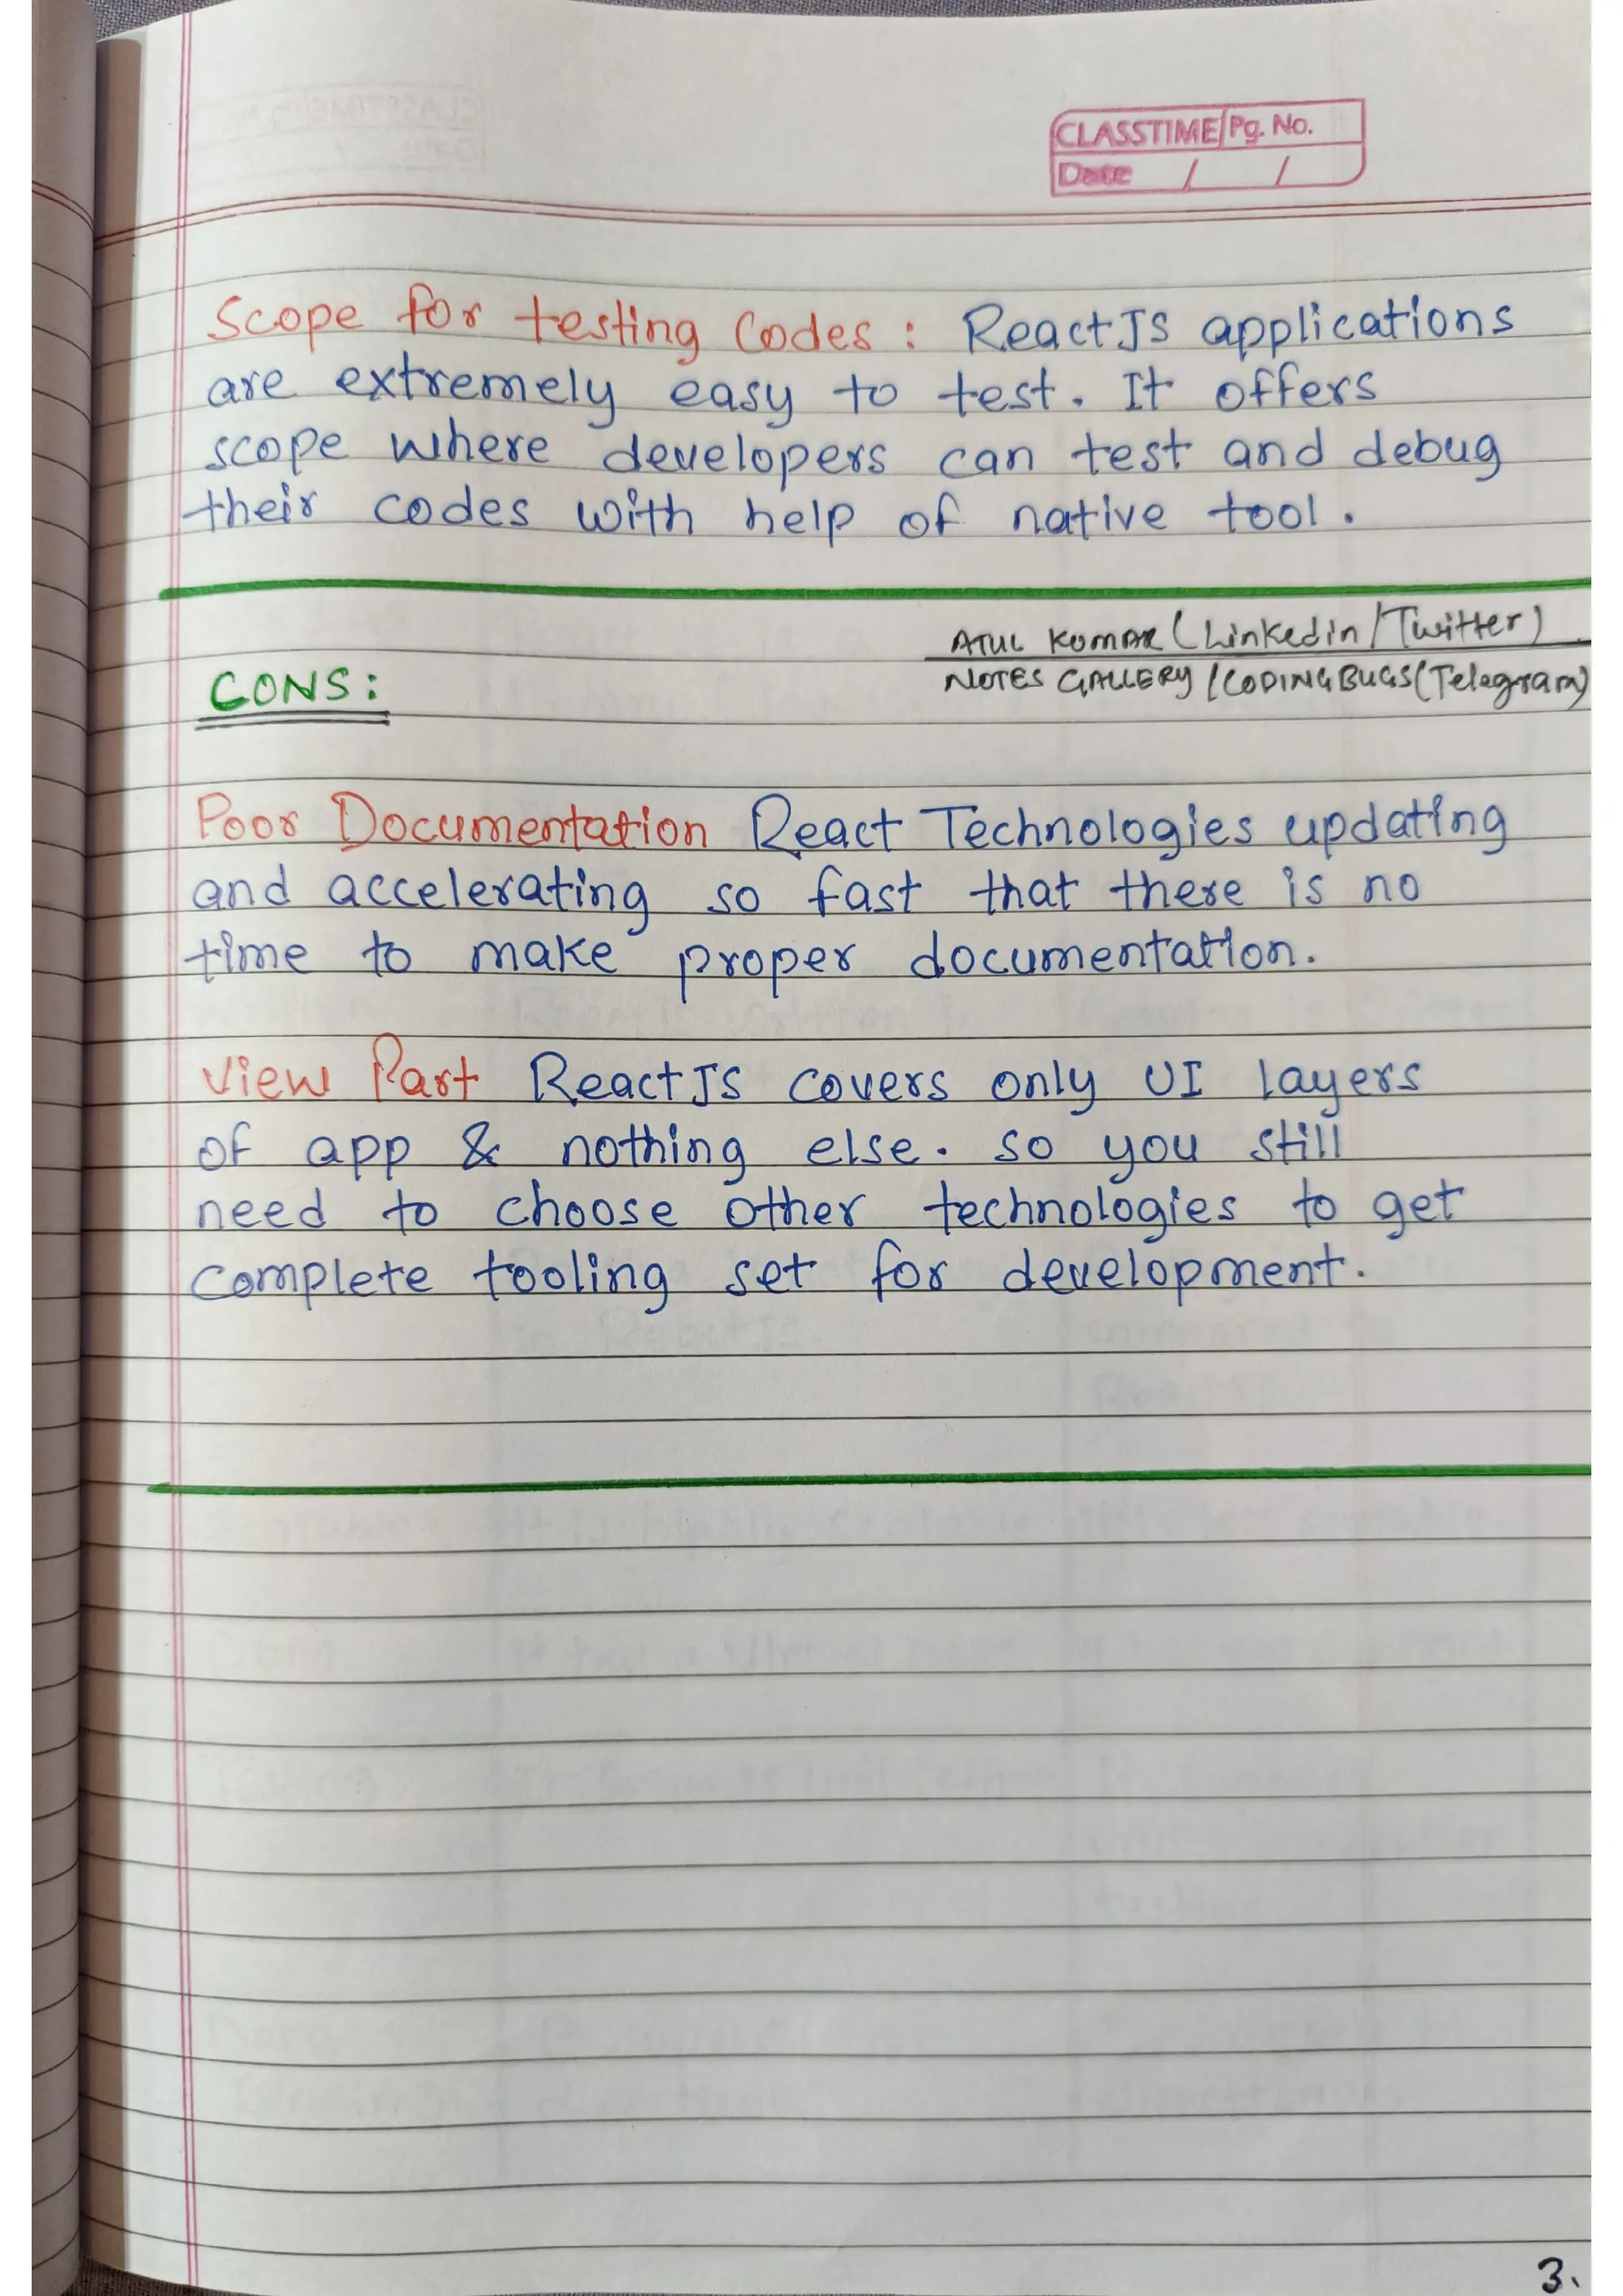 CLASSTIME Pg. No.
Date / /
Scope for testing Codes : ReactJS applications
are extremely easy to test. It offers
scope where developers can test and debug
their codes with help of native tool.
ATUL KUMAR (Linkedin/Twitter)
NOTES GALLERY / CODINGBUGS (Telegram)
CONS:
Poor Documentation React Technologies updating
and accelerating so fast that there is no
time to make proper documentation.
View Part ReactJS covers only UI layers
of app & nothing else. so you still
need to choose other technologies to get
complete tooling set for development.
3.